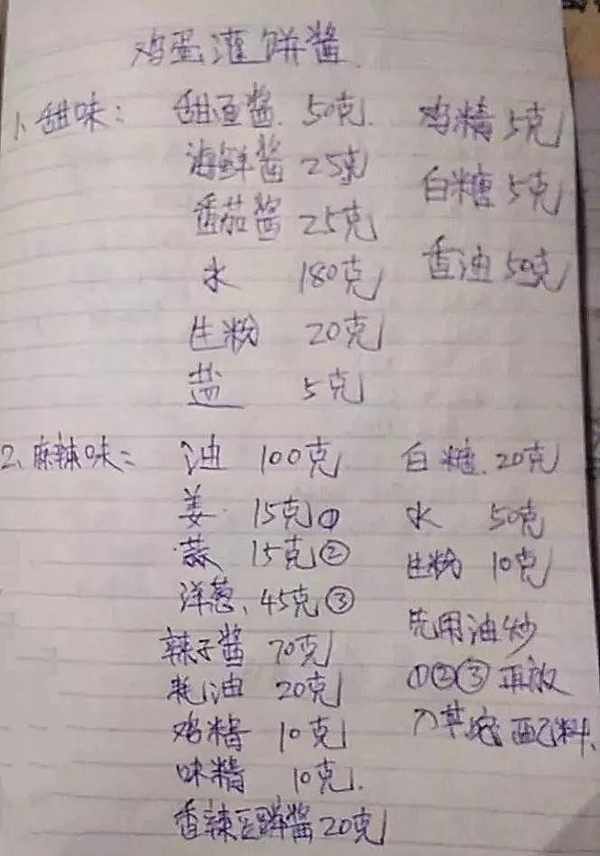 鸡蛋灌饼酱
1、甜味：
甜面酱 50克
海鲜酱 25克
番茄酱 25克
水 180克
生粉 20克
盐 5克
鸡精 5克
白糖 5克
香油 50克
2、麻辣味：
油 100克
姜 15克①
蒜 15克②
洋葱、45克③
辣子酱 70克
耗油 20克
鸡精 10克
味精 10克
香辣豆瓣酱 20克
白糖 20克
水 50克
生粉 10克
先用油炒
①②③再放
入其它配料